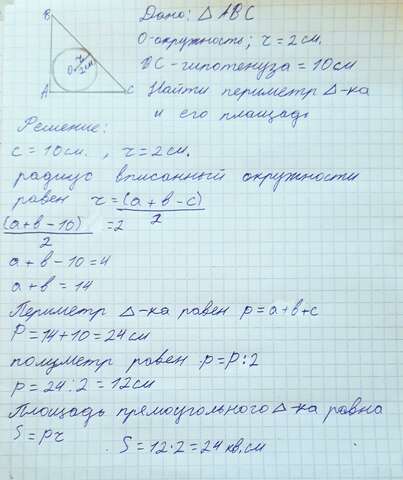 Дано: △ ABC
B
O-окружность; r = 2 см.
r
O 2 см
BC - гипотенуза = 10 см
A
C
Найти периметр △-ка
и его площадь
Решение:
c = 10 см. , r = 2 см.
радиус вписанный окружности
равен r = (a + b - c)
2
(a + b - 10) = 2
2
a + b - 10 = 4
a + b = 14
Периметр △-ка равен p = a + b + c
P = 14 + 10 = 24 см
полуметр равен p = P : 2
p = 24 : 2 = 12 см
Площадь прямоугольного △-ка равна
S = pr
S = 12 * 2 = 24 кв.см